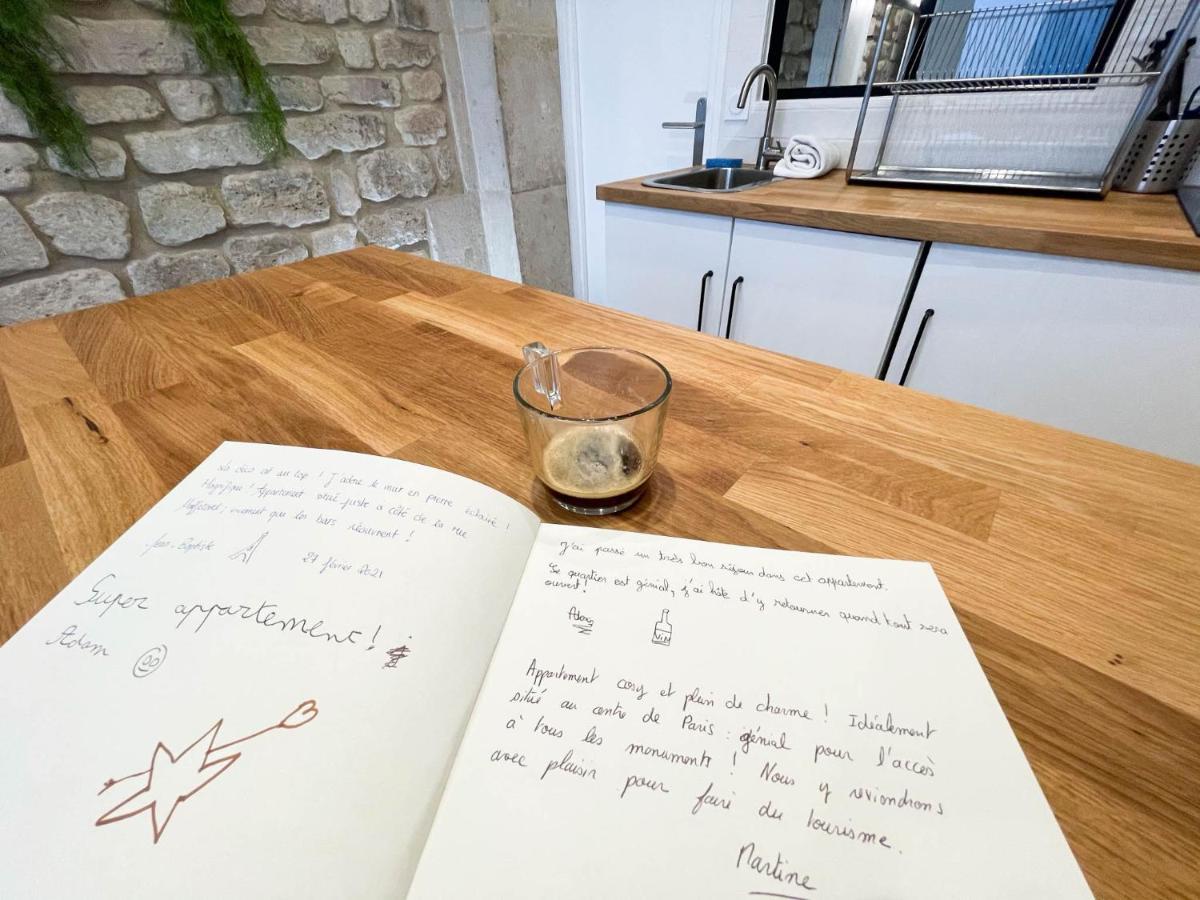 La déco est au top ! J'adore le mur en pierre éclairé !
Magnifique ! Appartement situé juste à côté de la rue
; vivement que les bars réouvrent !
Jean-Baptiste
27 février 2021
Super appartement !
Adam
J'ai passé un très bon séjour dans cet appartement.
Le quartier est génial, j'ai hâte d'y retourner quand tout sera
ouvert !
VIN
Appartement cosy et plein de charme ! Idéalement
situé au centre de Paris : génial pour l'accès
à tous les monuments ! Nous y reviendrons
avec plaisir pour faire du tourisme.
Martine